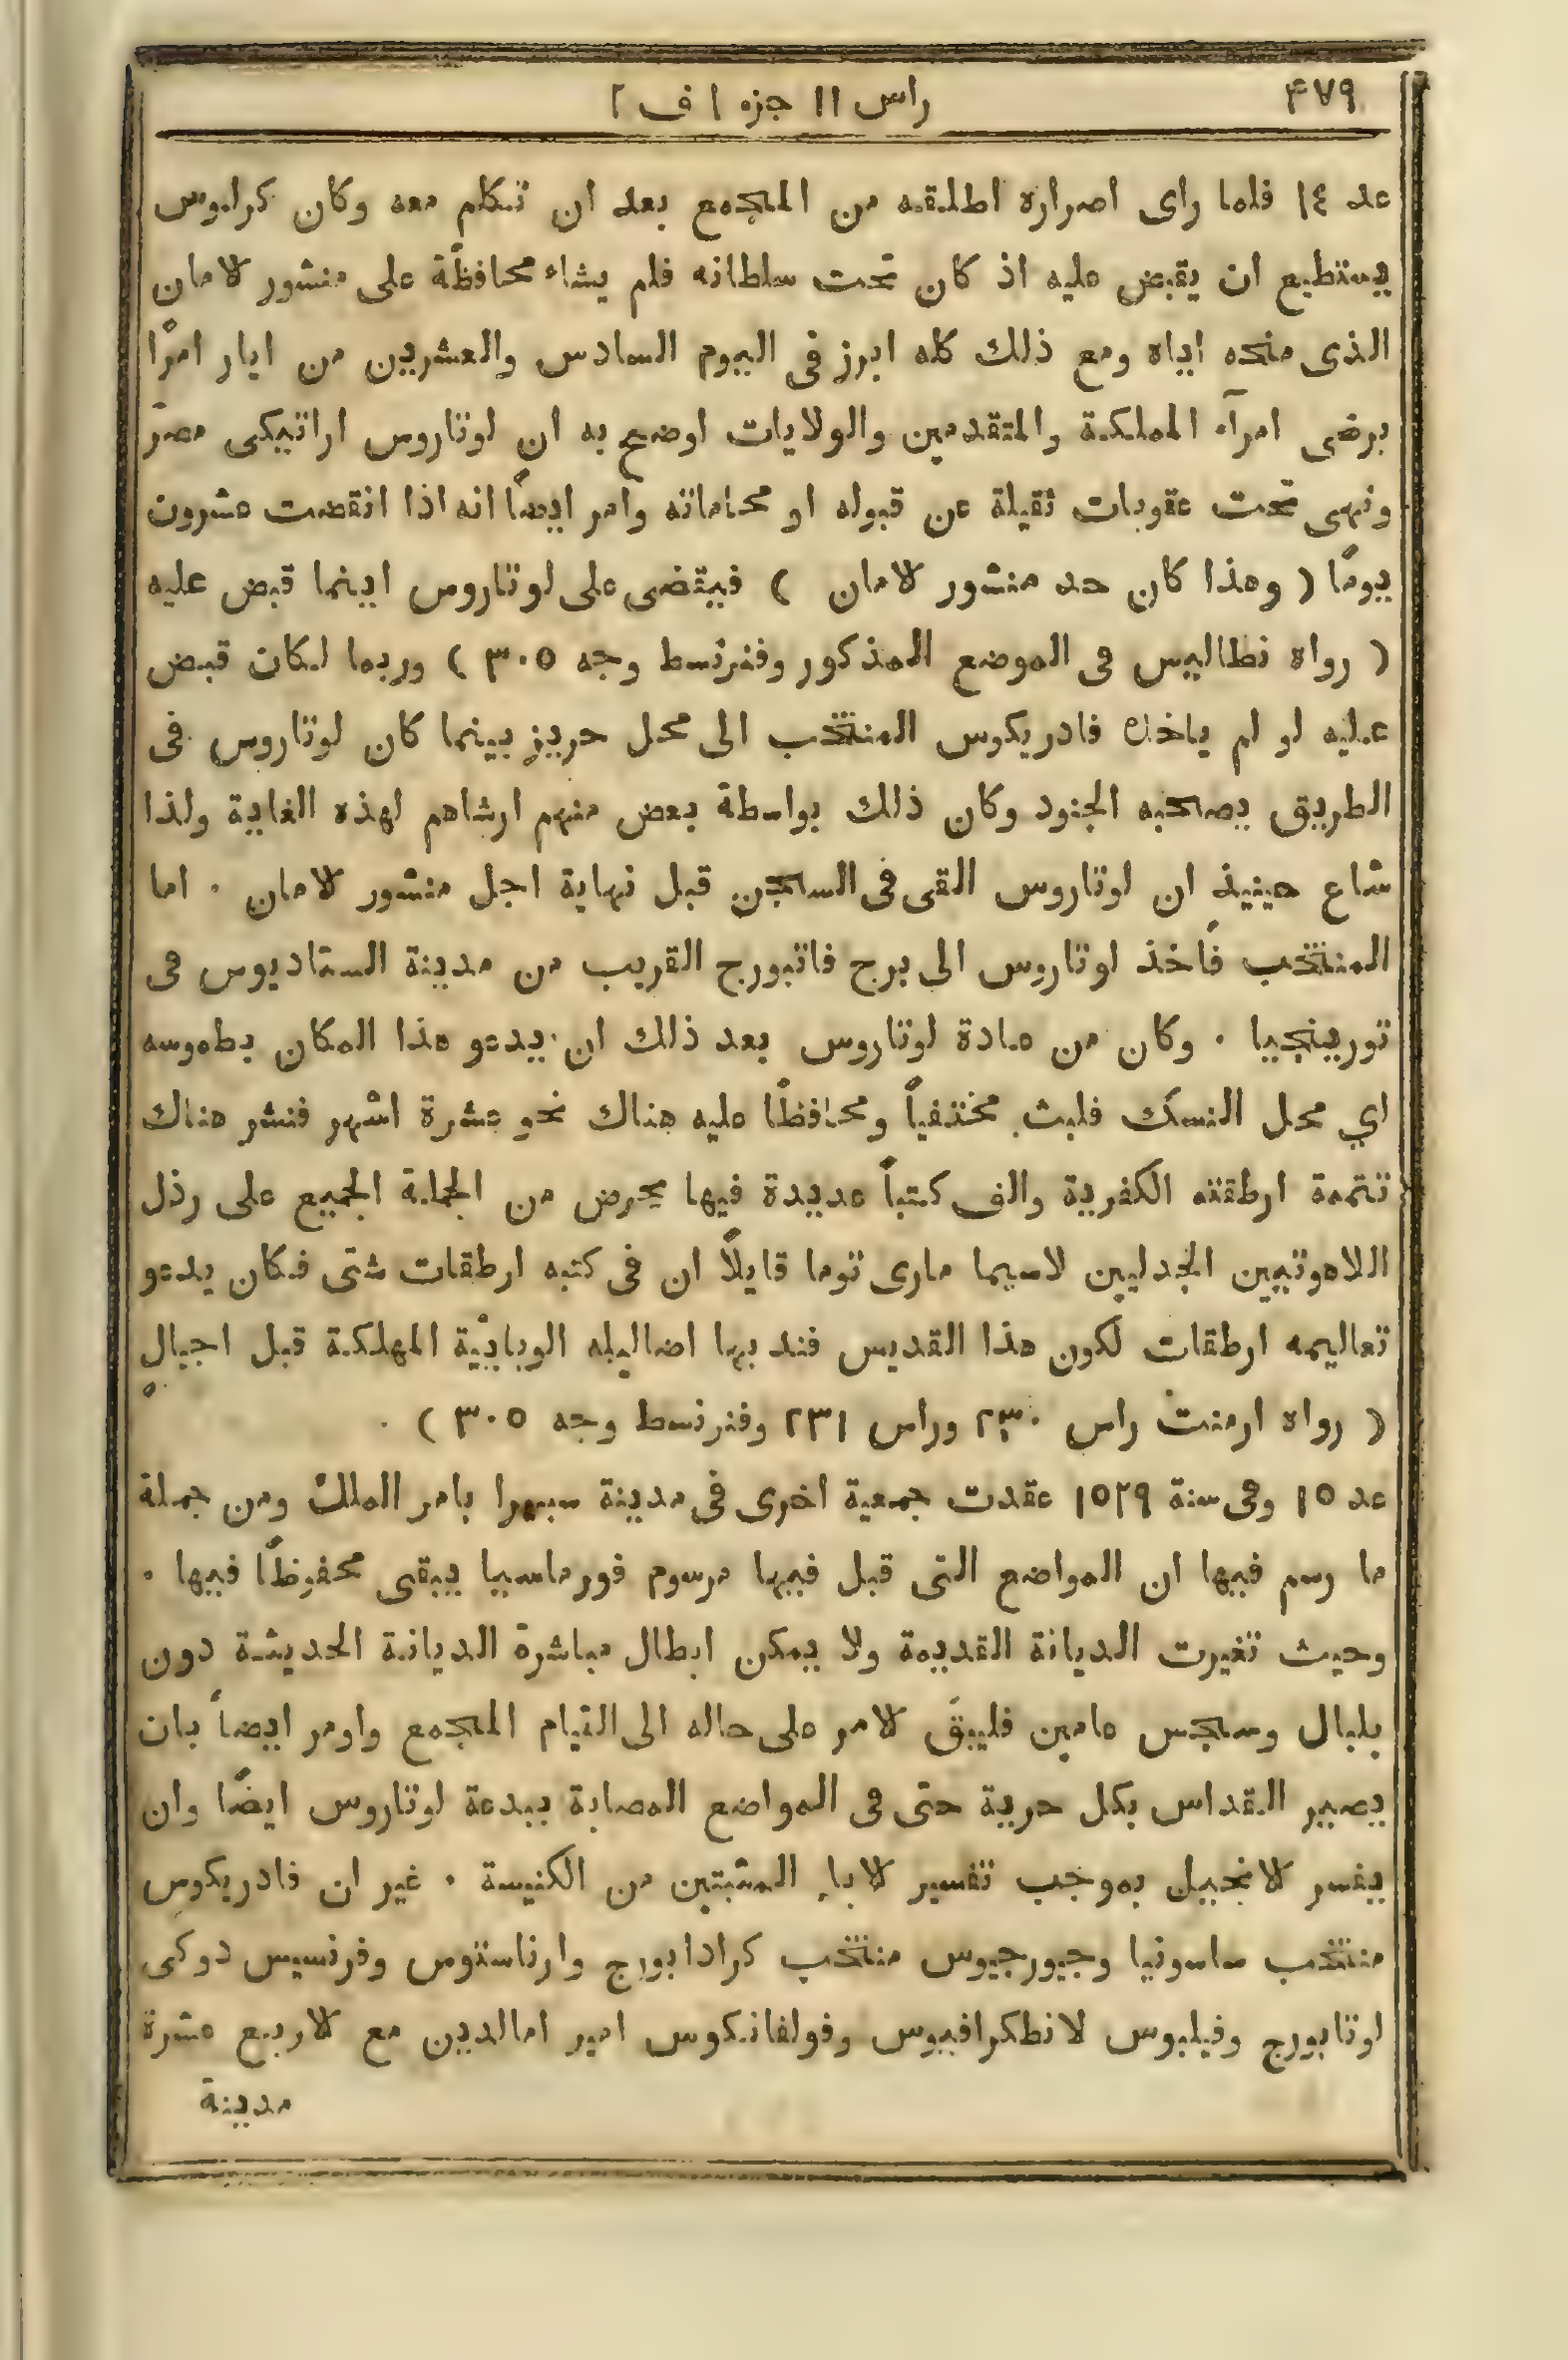 ۴۷۹
راس ١١ جزء ١ ف ٢
عد ١٤ فلما راى اصراره اطلقه من المجمع بعد ان تكلم معه وكان كرلوس
يستطيع ان يقبض عليه اذ كان تحت سلطانه فلم يشاء محافظةً على منشور لامان
الذى منحه اياه ومع ذلك كله ابرز فى اليوم السادس والعشرين من ايار امرًا
برضى امرآء المملكة والمتقدمين والولايات اوضح به ان لوتاروس اراتيكى مصرّ
ونهى تحت عقوبات ثقيلة عن قبوله او محاماته وامر ايضًا انه اذا انقضت عشرون
يومًا ( وهذا كان حد منشور لامان ) فيقضى على لوتاروس اينما قبض عليه
( رواه نطاليس فى الموضع المذكور وفنرنسط وجه ٣٠٥ ) وربما لكان قبض
عليه لو لم ياخذه فادريكوس المنتخب الى محل حريز بينما كان لوتاروس فى
الطريق يصحبه الجنود وكان ذلك بواسطة بعض منهم ارشاهم لهذه الغاية ولذا
شاع حينيذٍ ان لوتاروس القى فى السجن قبل نهاية اجل منشور لامان . اما
المنتخب فاخذ لوتاروس الى برج فاتبورج القريب من مدينة الستاديوس فى
تورينجيا . وكان من عادة لوتاروس بعد ذلك ان يدعو هذا المكان بطموسه
اي محل النسك فلبث مختفياً ومحافظًا عليه هناك نحو عشرة اشهر فنشر هناك
تتمة ارطقته الكفرية والف كتباً عديدة فيها يحرض من الجملة الجميع على رذل
اللاهوتيين الجدليين لاسيما مارى توما قايلاً ان فى كتبه ارطقات شتى فكان يدعو
تعاليمه ارطقات لكون هذا القديس فند بها اضاليله الوبايّية المهلكة قبل اجيالٍ
( رواه ارمنت راس ٢٣٠ وراس ٢٣١ وفنرنسط وجه ٣٠٥ ) .
عد ١٥ وفى سنة ١٥٢٩ عقدت جمعية اخرى فى مدينة سبيرا بامر الملك ومن جملة
ما رسم فيها ان المواضع التى قبل فيها مرسوم فورماسيا يبقى محفوظًا فيها .
وحيث تغيرت الديانة القديمة ولا يمكن ابطال مباشرة الديانة الحديثة دون
بلبال وسجس عامين فليبقَ لامر على حاله الى التيام المجمع واومر ايضاً بان
يصير القداس بكل حرية حتى فى المواضع المصابة ببدعة لوتاروس ايضًا وان
يفسر لانجيل بموجب تفسير لاباء المثبتين من الكنيسة . غير ان فادريكوس
منتخب ساسونيا وجيورجيوس منتخب كرادابورج وارناستوس وفرنسيس دوكى
لوتابورج وفيلبوس لانطكرافيوس وفولفانكوس امير امالدين مع لاربع عشرة
مدينة